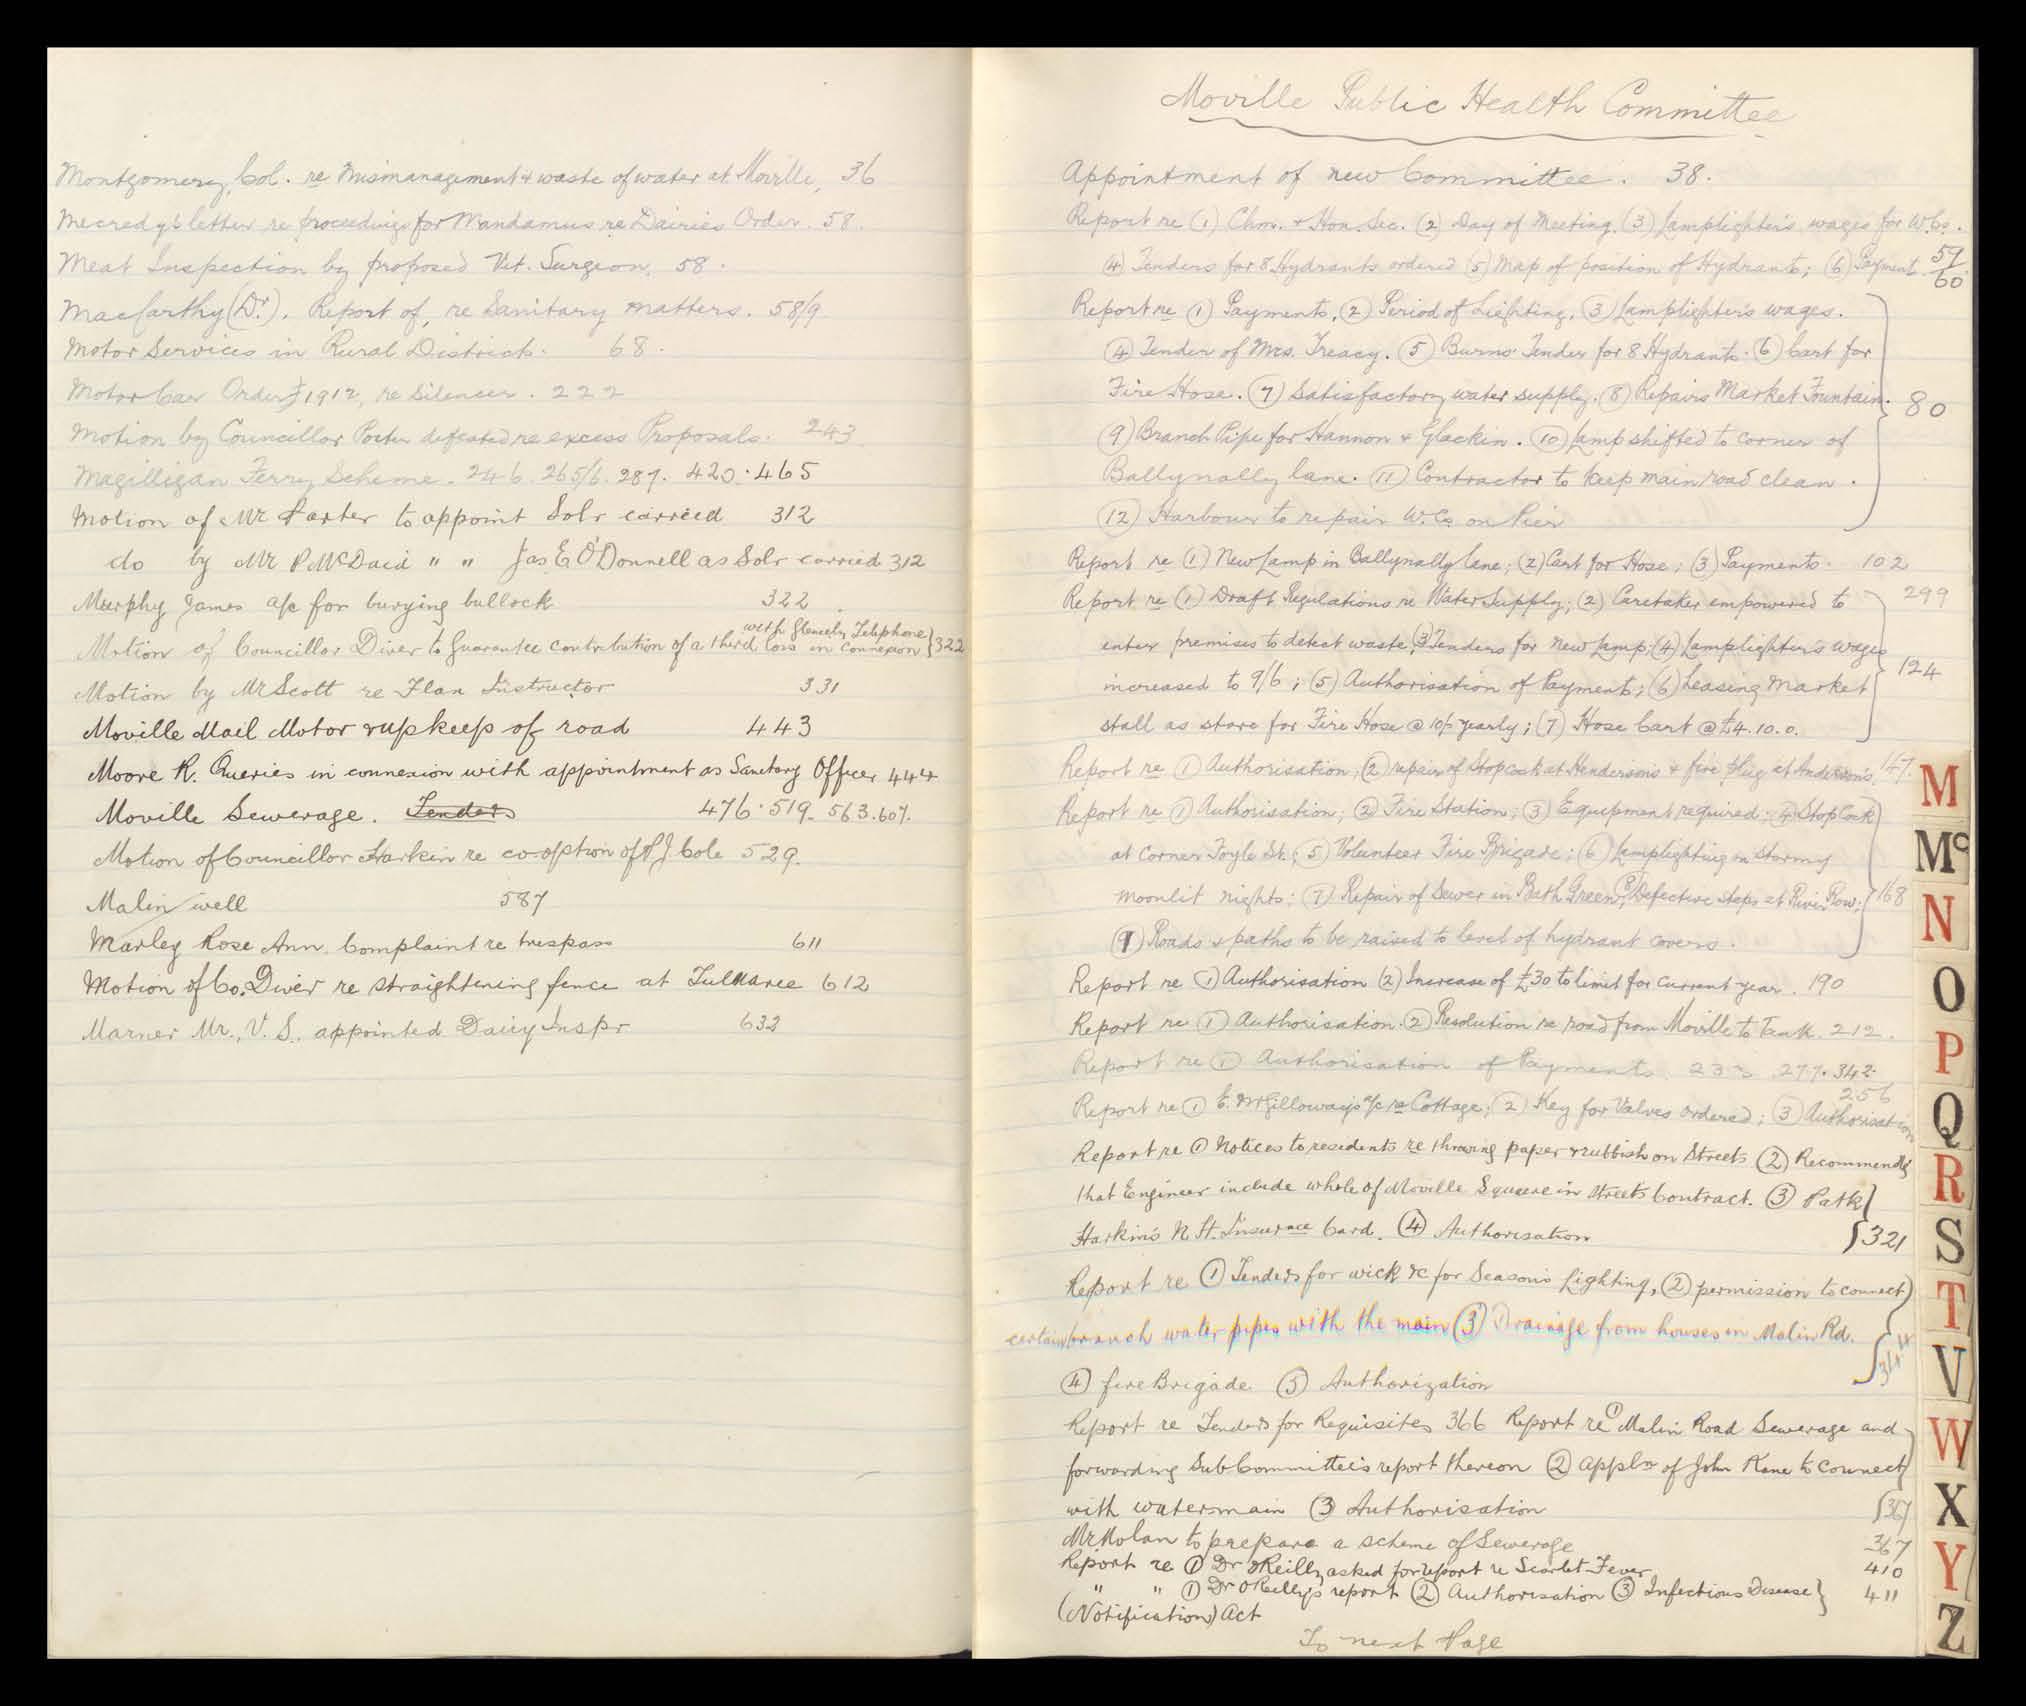 Montgomery, Col. re Mismanagement & waste of water at Moville, 36
Mecredy's letter re proceedings for Mandamus re Dairies Order. 58.
Meat Inspection by proposed Vet. Surgeon, 58.
MacCarthy (Dr.). Report of, re Sanitary matters. 58/9
Motor Services in Rural District. 68.
Motor Car Order 1912, re Silencer. 222
Motion by Councillor Porter defeated re excess Proposals. 243
Magilligan Ferry Scheme. 246. 265/6. 287. 420. 465
Motion of Mr Porter to appoint Solr carried 312
do by Mr P. McDaid " " Jas E O'Donnell as Solr carried 312
Murphy James a/c for burying bullock 322
with Glenely Telephone
Motion of Councillor Diver to Guarantee contribution of a third loss in connexion } 322
Motion by Mr Scott re Flax Instructor 331
Moville Mail Motor & upkeep of road 443
Moore R. Queries in connexion with appointment as Sanitary Officer 444
Moville Sewerage. Tenders 476. 519. 563. 607.
Motion of Councillor Harkin re co-option of P J Cole 529.
Malin well 587
Marley Rose Ann. Complaint re trespass 611
Motion of Co. Diver re straightening fence at Tulnaree 612
Marner Mr., V.S. appointed Dairy Inspr 632
Moville Public Health Committee
Appointment of new Committee. 38.
Report re (1) Chm. & Hon. Sec. (2) Day of Meeting. (3) Lamplighter's wages for W.Cs.
(4) Tenders for 8 Hydrants ordered (5) Map of position of Hydrants; (6) Payment 59/60
Report re (1) Payments, (2) Period of Lighting, (3) Lamplighter's wages.
(4) Tender of Mrs. Treacy. (5) Burns' Tender for 8 Hydrants. (6) Cart for
Fire Hose. (7) Satisfactory water supply. (8) Repairs Market Fountain. } 80
(9) Branch Pipe for Hannon & Glackin. (10) Lamp shifted to corner of
Ballynally lane. (11) Contractor to keep main road clean.
(12) Harbour to repair W.Cs on Pier
Report re (1) New Lamp in Ballynally lane; (2) Cart for Hose; (3) Payments. 102
Report re (1) Draft Regulations re Water Supply; (2) Caretaker empowered to 299
enter premises to detect waste; (3) Tenders for new Lamp; (4) Lamplighter's wages
increased to 9/6; (5) Authorisation of Payments; (6) Leasing Market } 124
stall as store for Fire Hose @ 10/- yearly; (7) Hose Cart @ £4. 10. 0.
Report re (1) Authorisation; (2) repair of Stopcock at Henderson's & fire plug at Anderson's. 147.
Report re (1) Authorisation; (2) Fire Station; (3) Equipment required; (4) Stop Cock
at corner Foyle St.; (5) Volunteer Fire Brigade; (6) Lamplighting on stormy
moonlit nights; (7) Repair of Sewer in Bath Green; (8) Defective steps at River Row; } 168
(9) Roads & paths to be raised to level of hydrant covers.
Report re (1) Authorisation (2) Increase of £30 to limit for current year. 190
Report re (1) Authorisation. (2) Resolution re road from Moville to Tank. 212.
Report re (1) Authorisation of Payments. 277. 342.
256
Report re (1) E. McGilloway's a/c re Cottage; (2) Key for Valves ordered; (3) Authorisation
Report re (1) Notices to residents re throwing paper & rubbish on Streets (2) Recommendg
that Engineer include whole of Moville Square in Streets Contract. (3) Patk
Harkin's N. H. Insurance Card. (4) Authorisation } 321
Report re (1) Tenders for wick &c for Season's Lighting, (2) permission to connect
certain branch water pipes with the main (3) Drainage from houses in Malin Rd.
(4) fire Brigade (5) Authorization } 344
Report re Tenders for Requisites 366 Report re (1) Malin Road Sewerage and
forwarding Sub Committee's report thereon (2) appln of John Kane to connect
with watermain (3) Authorisation } 367
Mr Nolan to prepare a scheme of Sewerage 367
Report re (1) Dr O'Reilly asked for report re Scarlet Fever 410
" " (1) Dr O'Reilly's report (2) Authorisation (3) Infectious Disease } 411
(Notification) Act
To next Page
M
Mc
N
O
P
Q
R
S
T
V
W
X
Y
Z